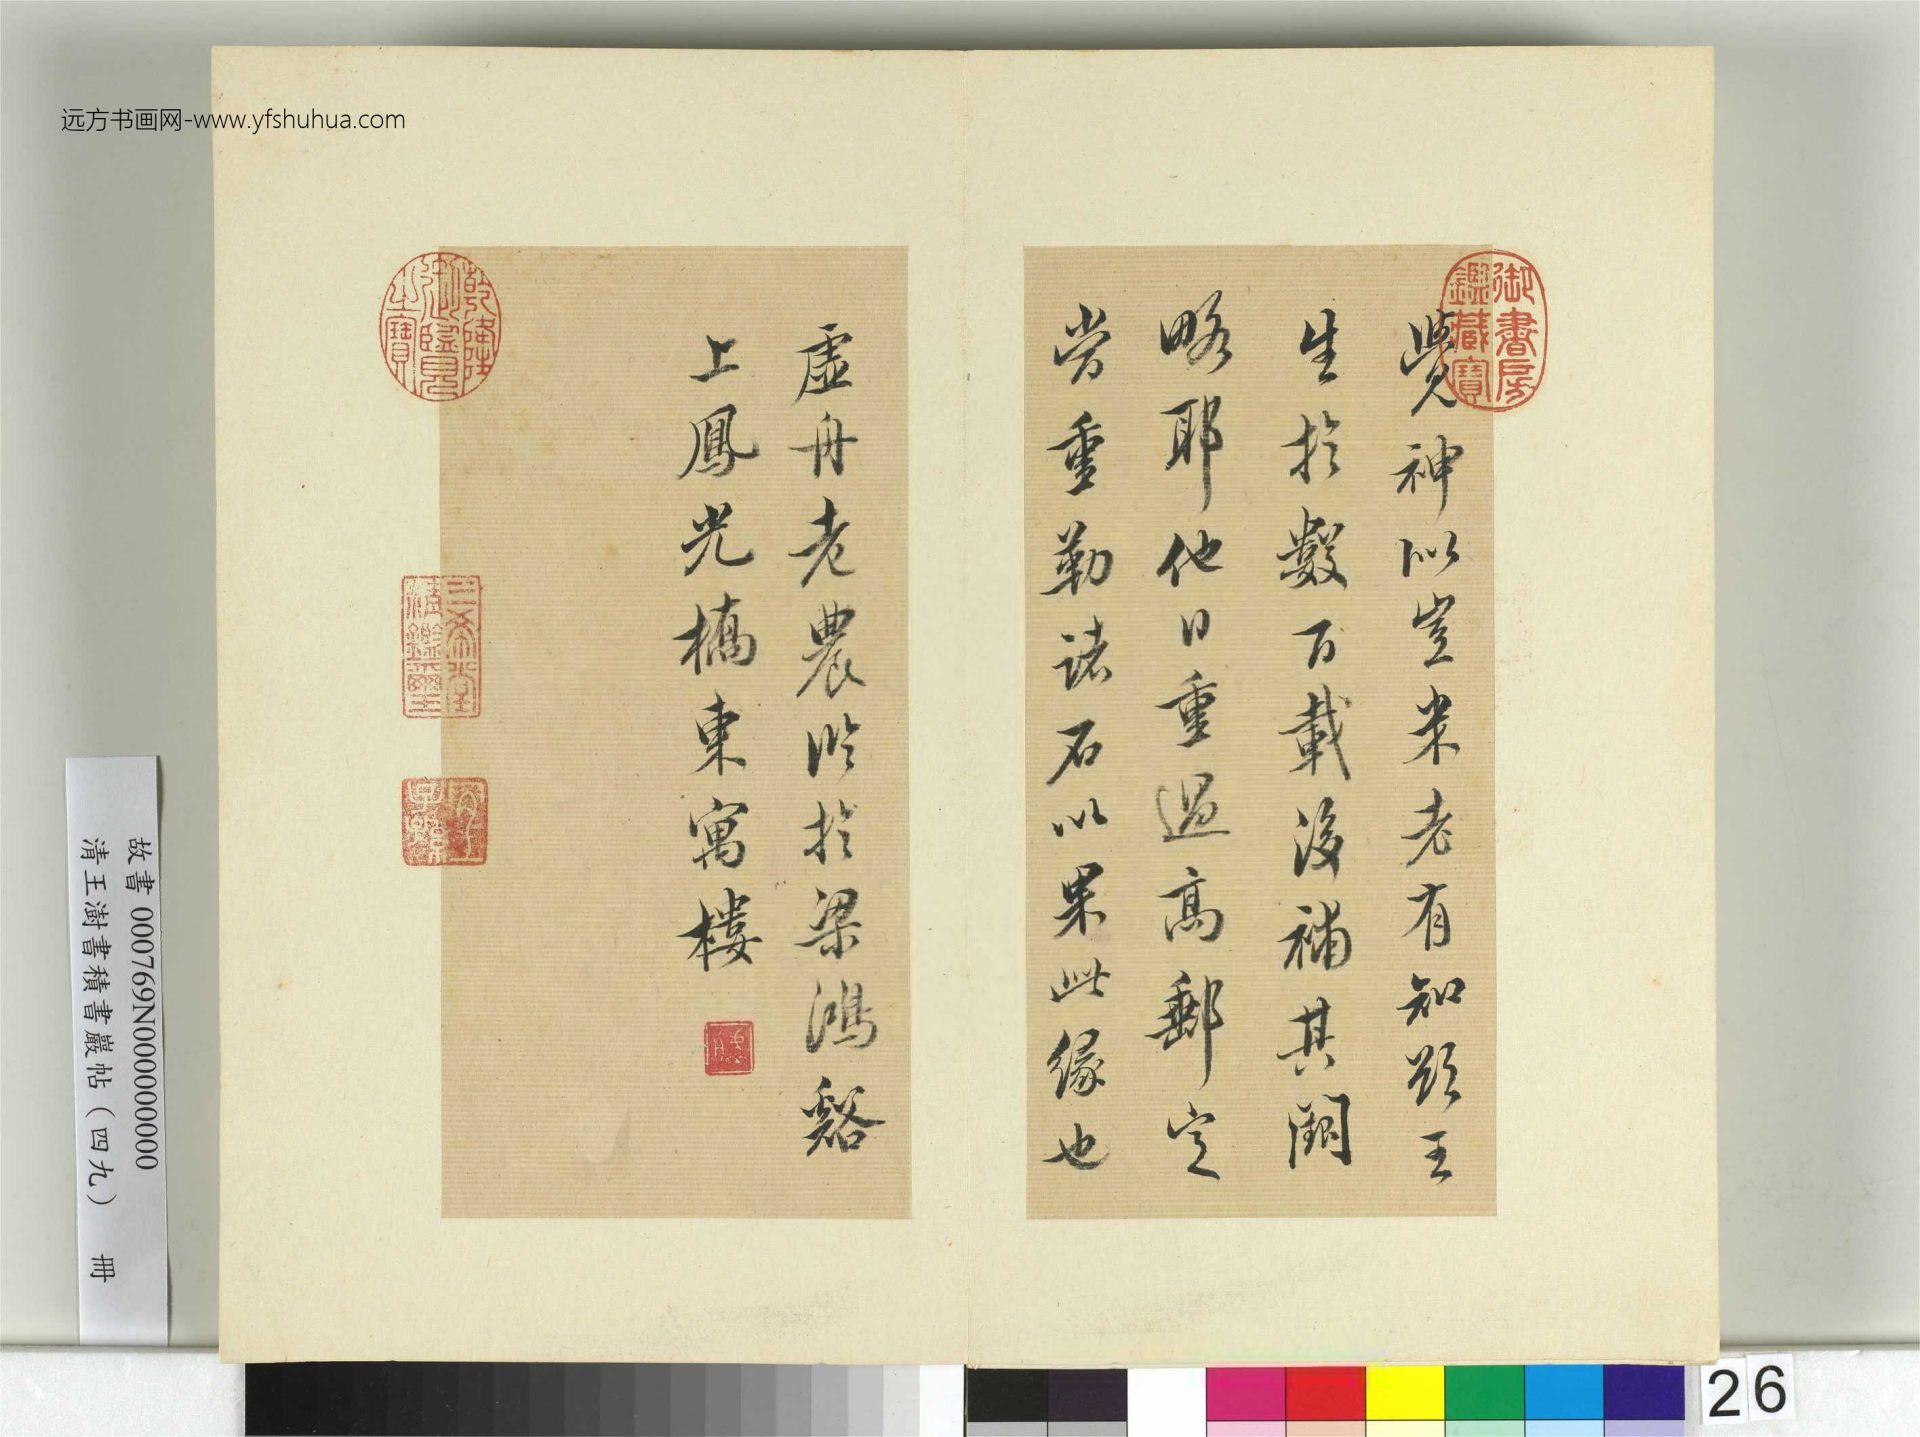 远方书画网-www.yfshuhua.com
覺神似豈米老有知顕王
生於數百載後補其闕
略耶他日重過高郵定
當重勒諸石以果此緣也
虛舟老農臨於梁鴻谿
上鳳光橋東寓樓
御書房
鑑藏寶
乾隆
御覽
之寶
三希堂
精鑑璽
宜子
孫
故書 000769N000000000
清王澍書積書巖帖(四九) 冊
26